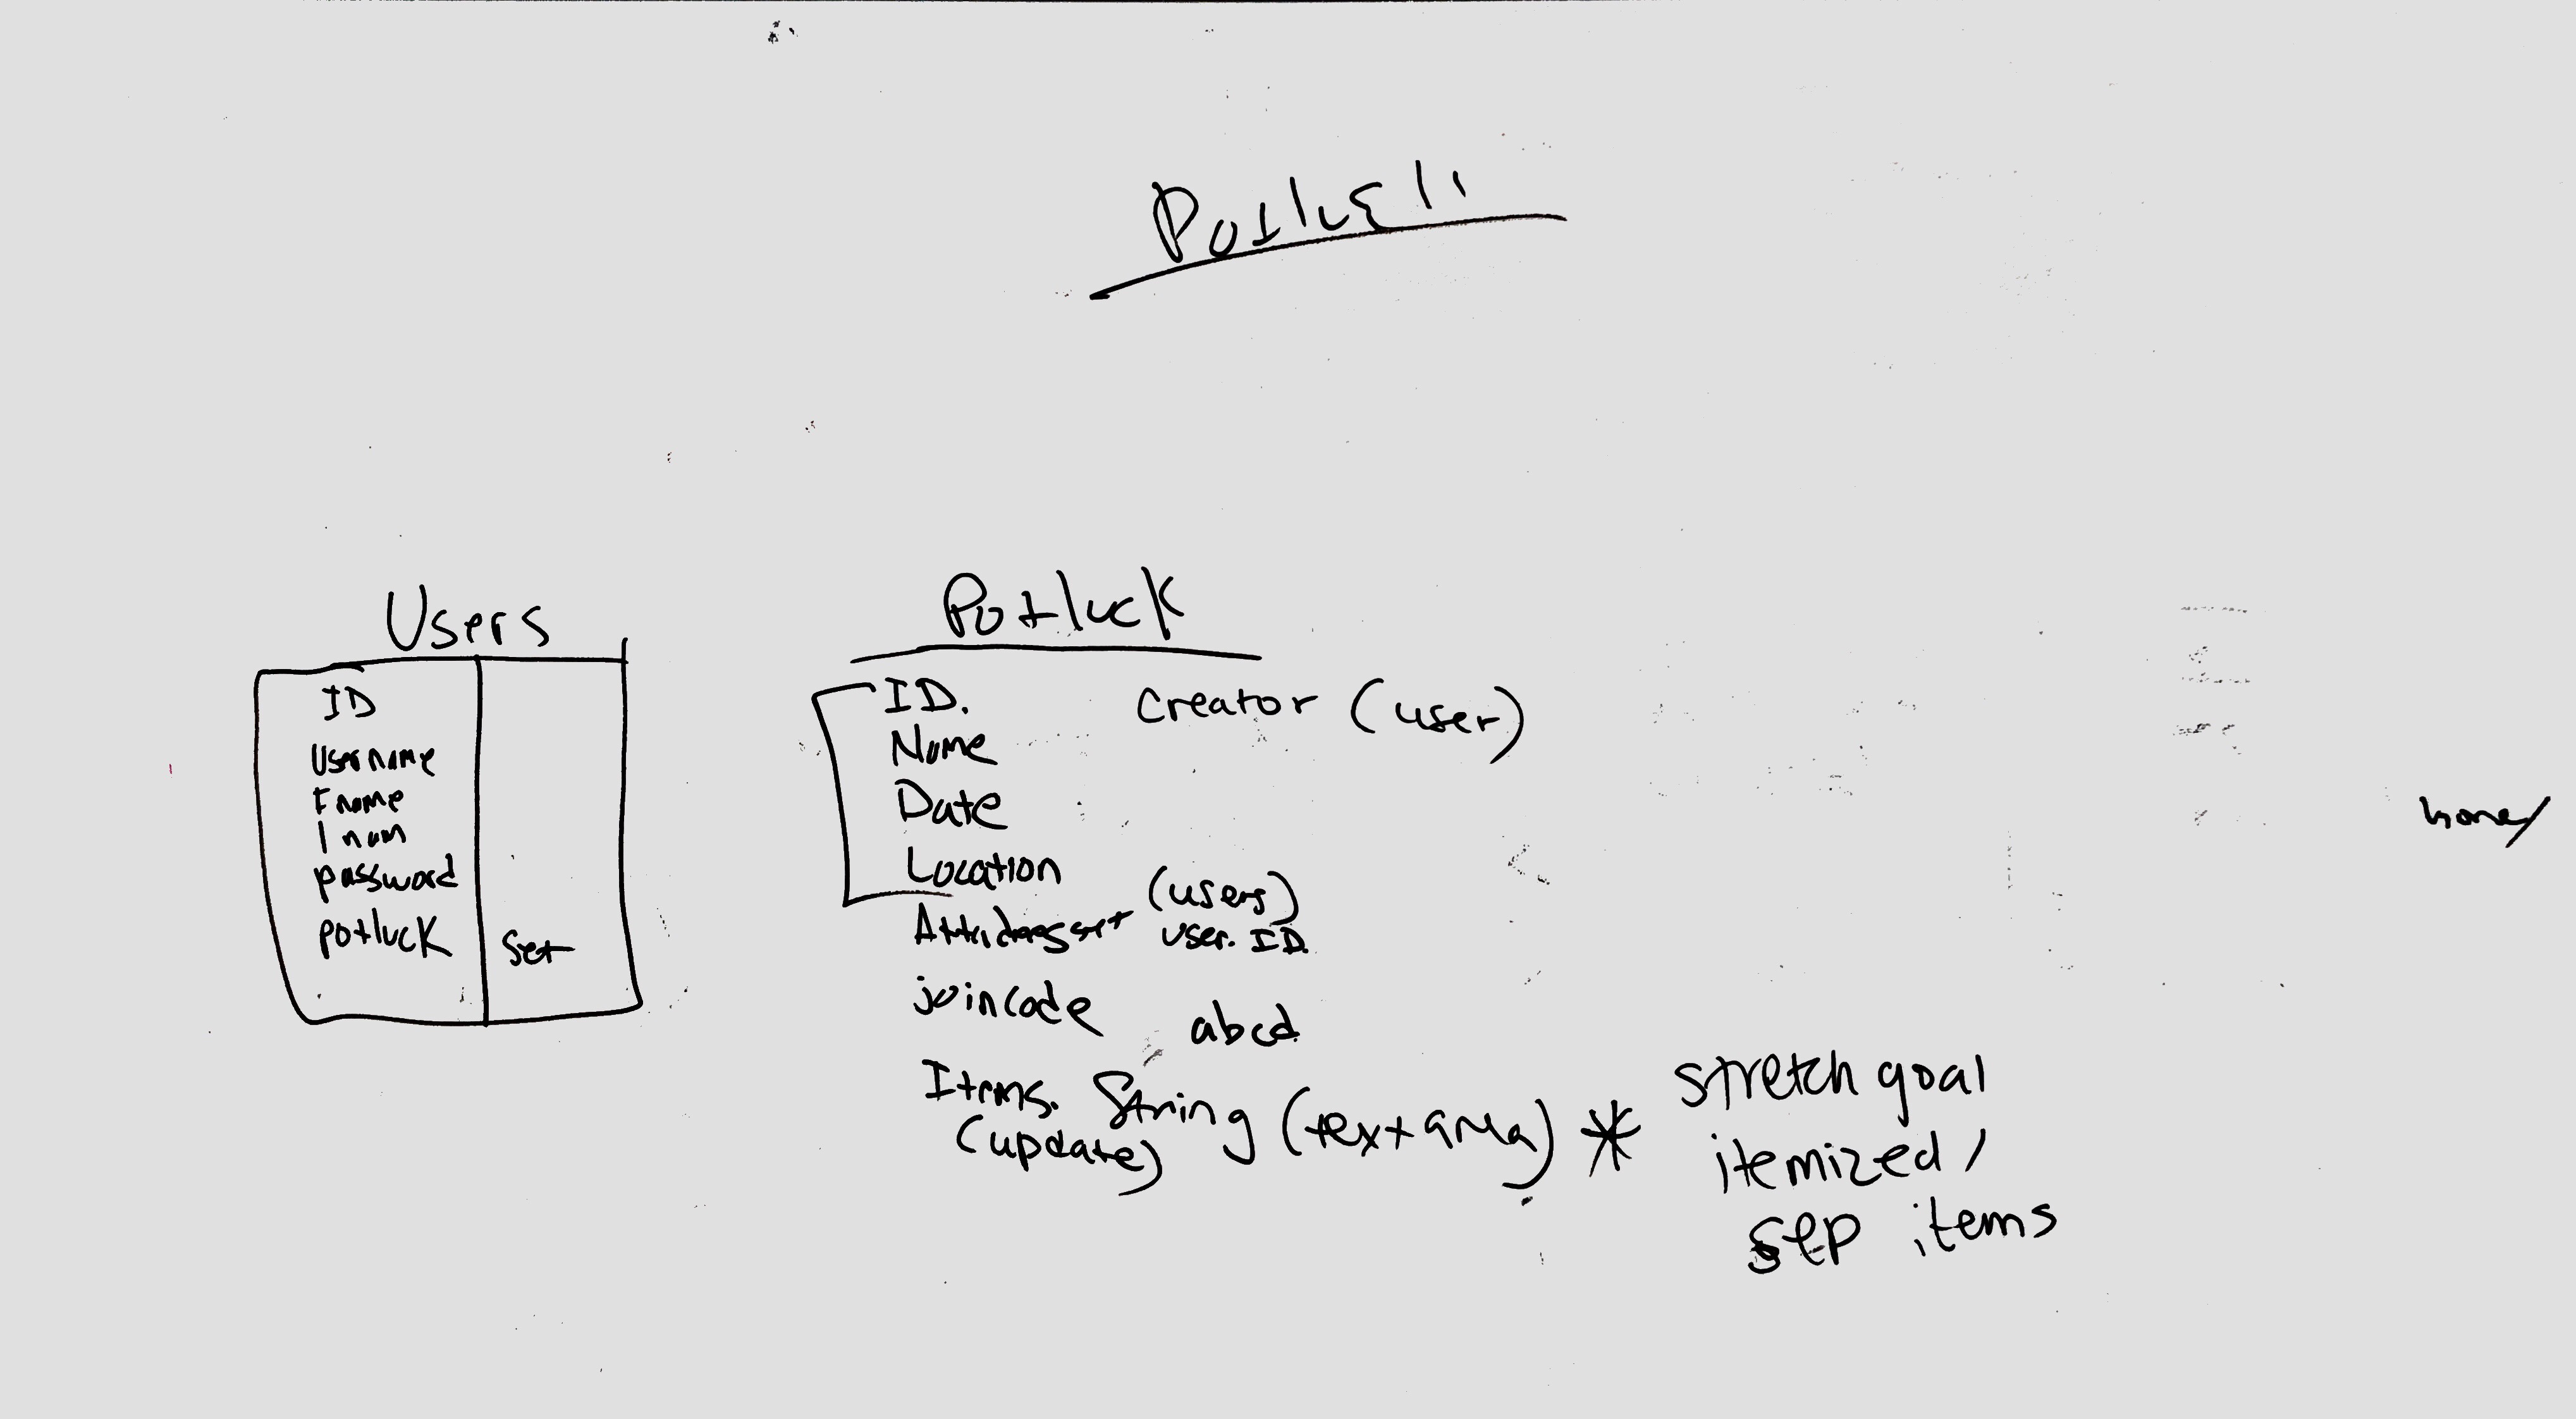 Potluck
Users
ID
Username
Fname
lnam
password
potluck set
Potluck
ID. Creator (user)
Name
Date
Location
(users)
user. ID.
joincode abcd
Items. String (textarea) *
(update)
stretch goal
itemized /
sep items
home/